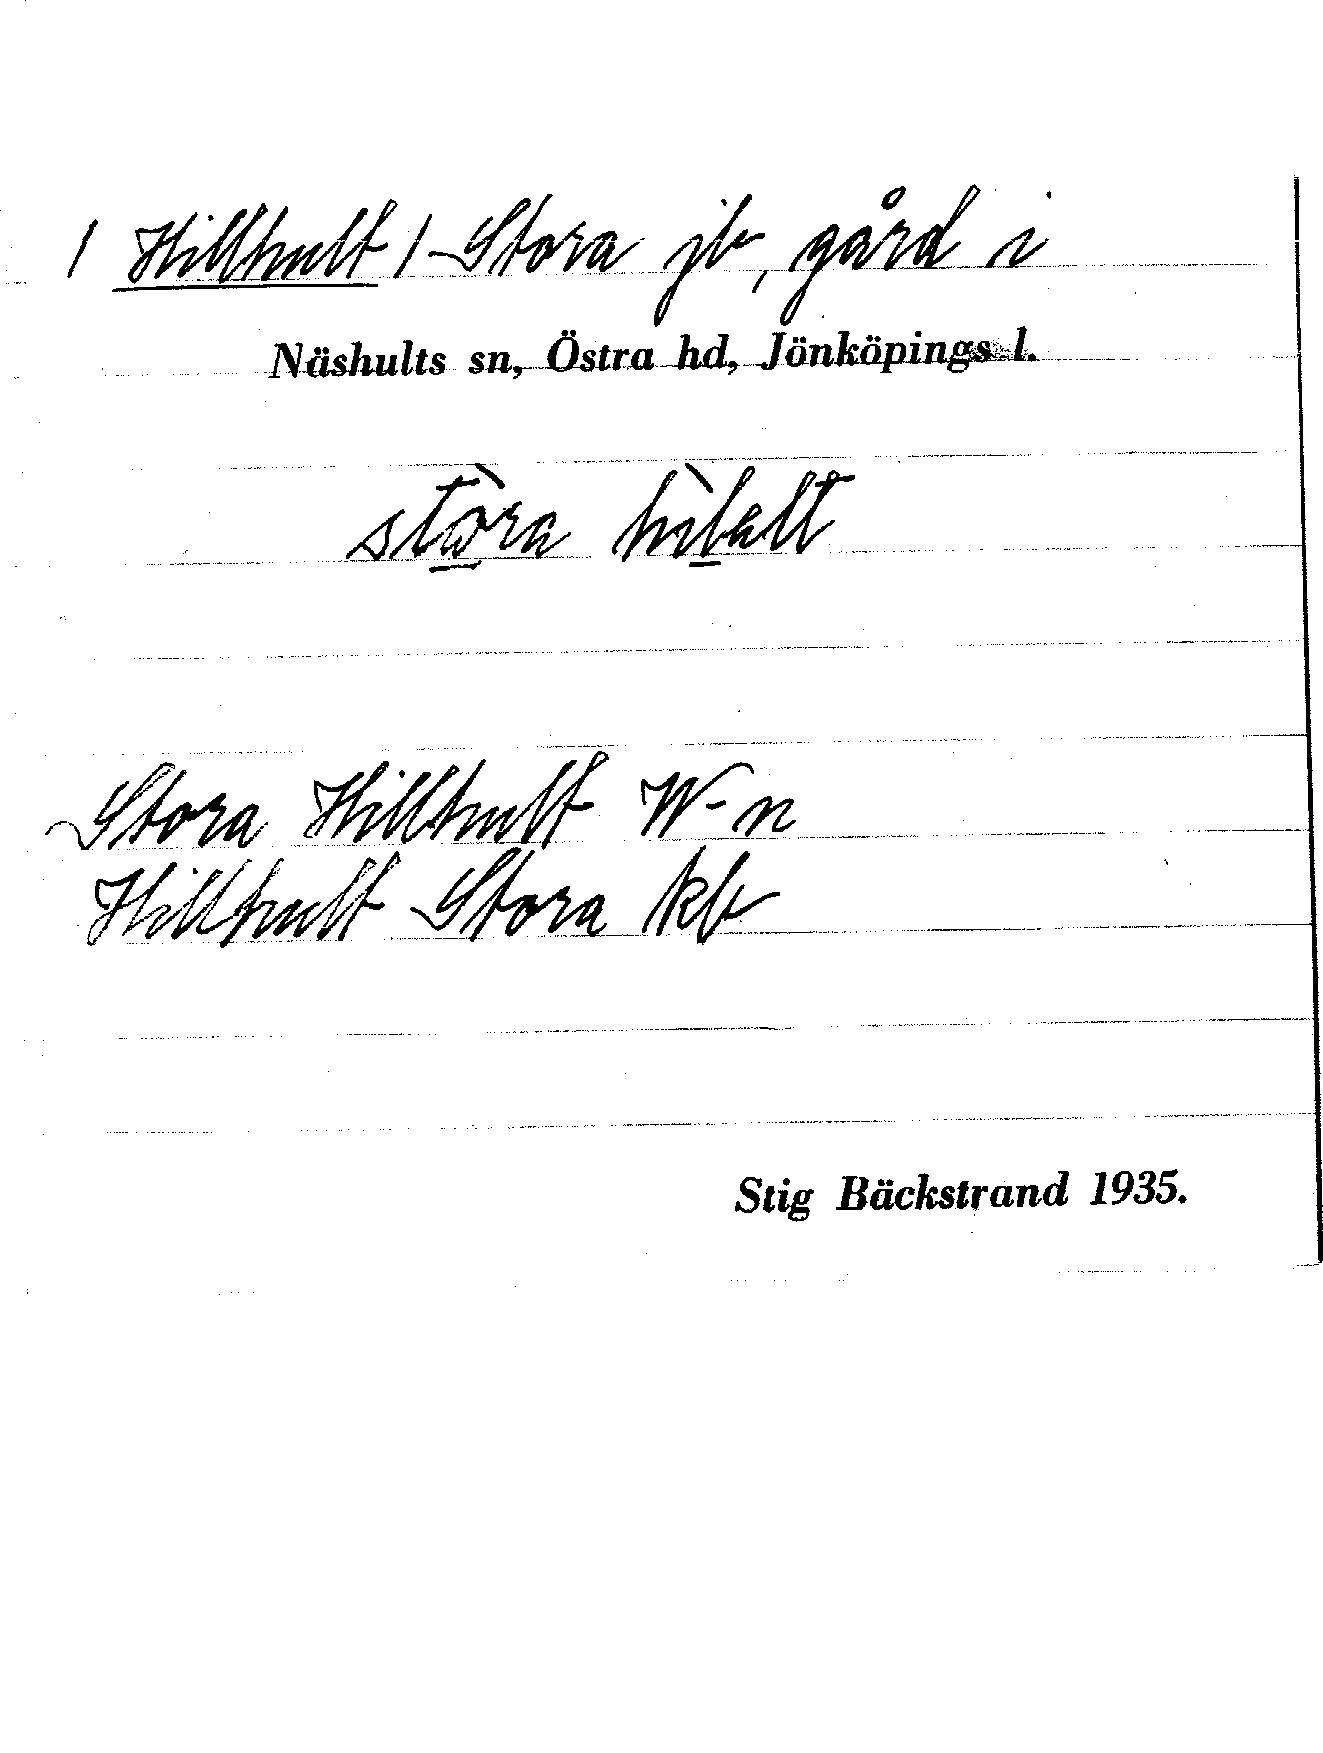 / Hillhult / Stora jb, gård i
Näshults sn, Östra hd, Jönköpings l.
stòra hìlalt
Stora Hillhult W-n
Hillhult Stora kb
Stig Bäckstrand 1935.